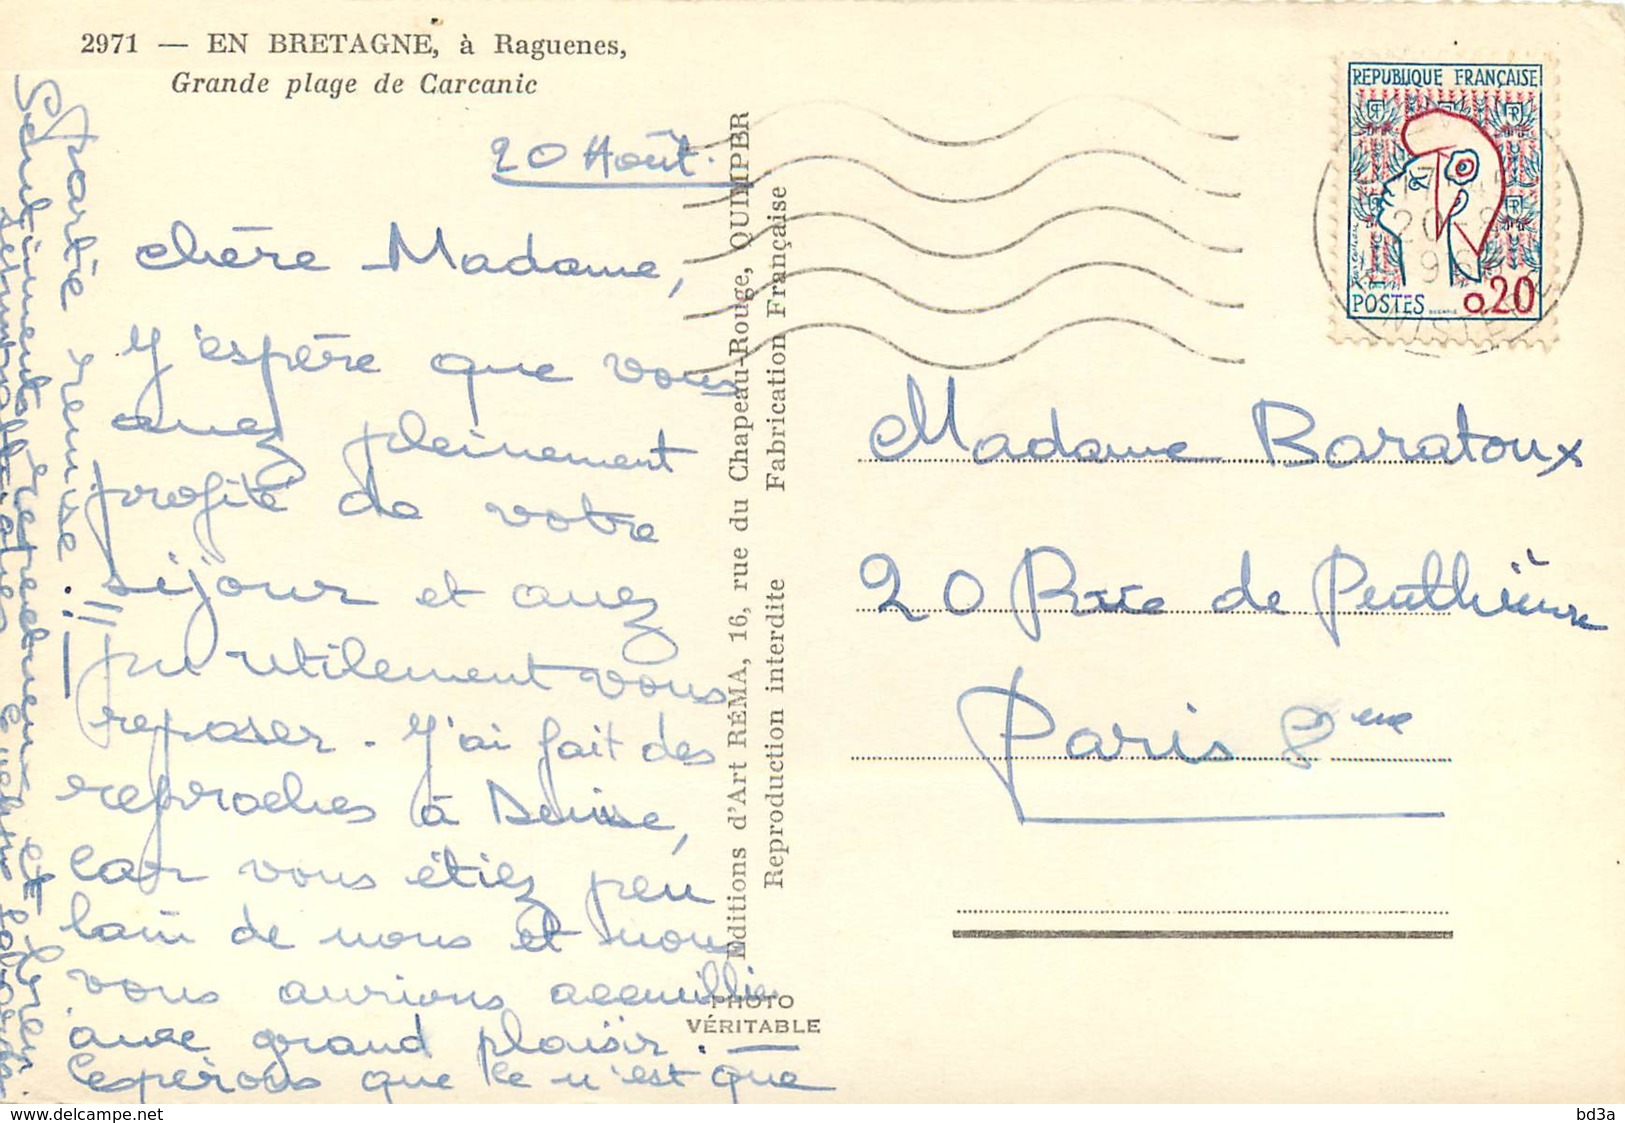 2971 — EN BRETAGNE, à Raguenes,
Grande plage de Carcanic
20 Août.
Chère Madame,
J'espère que vous
avez pleinement
profité de votre
séjour et avez
pu utilement vous
reposer. J'ai fait des
reproches à Denise,
car vous étiez peu
loin de nous et nous
vous aurions accueillie
avec grand plaisir. —
Espérons que ce n'est que
partie remise.!!
Sentiments respectueux et
Editions d'Art RÉMA, 16, rue du Chapeau-Rouge, QUIMPER
Reproduction interdite Fabrication Française
PHOTO
VÉRITABLE
REPUBLIQUE FRANÇAISE
POSTES 0.20
20-8
Madame Baratoux
20 Rue de Penthièvre
Paris 8eme
www.delcampe.net
bd3a